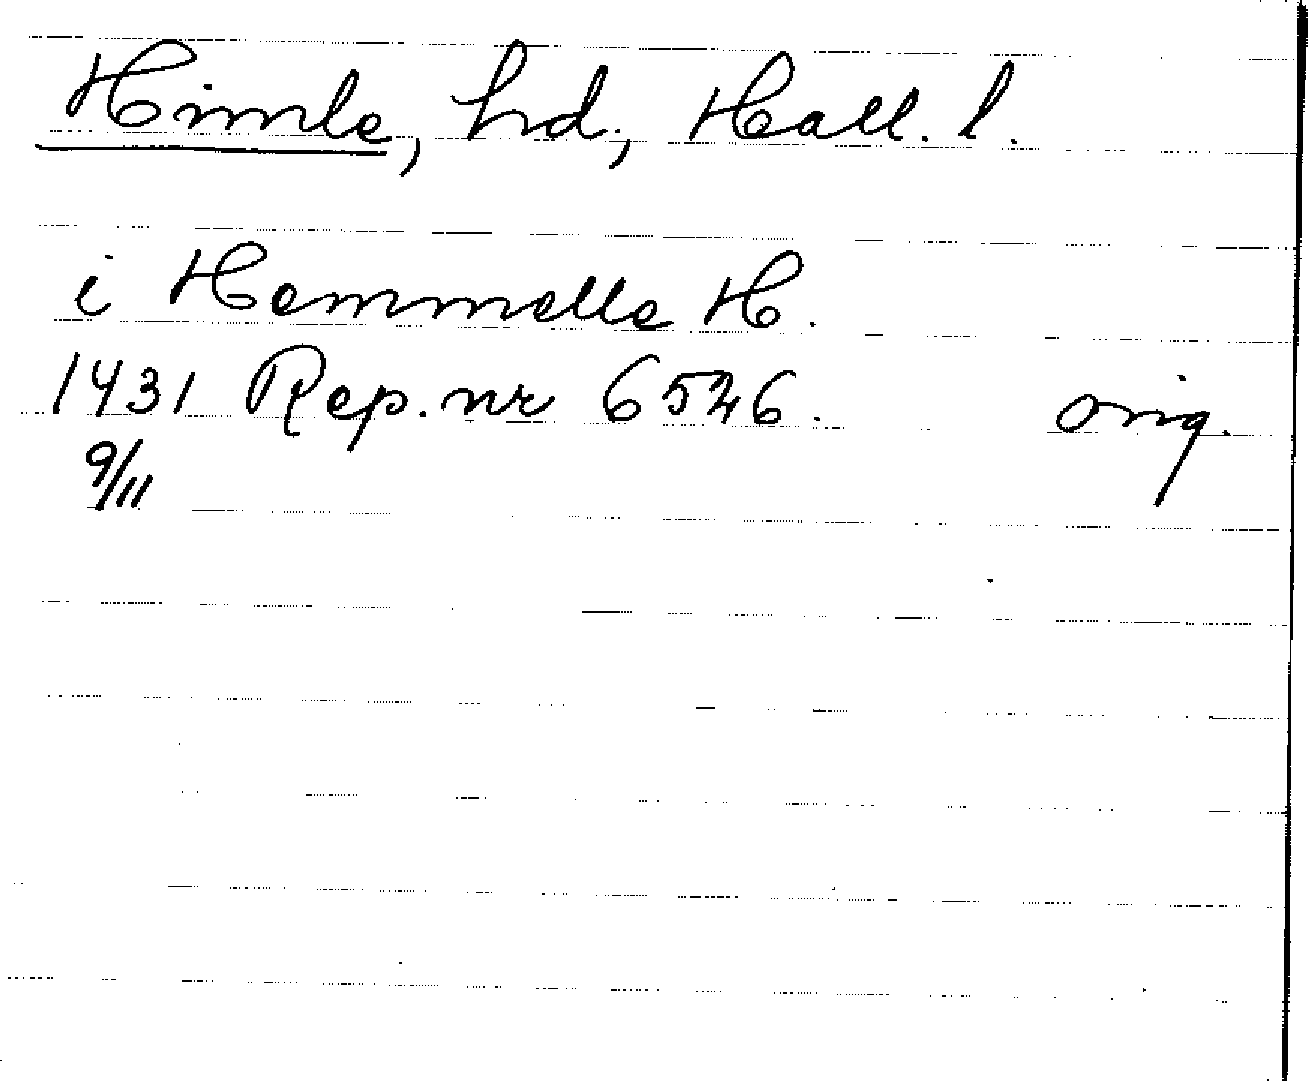 Himle, hd., Hall. l.
i Hemmelle H.
1431 Rep. nr 6526. orig.
9/11